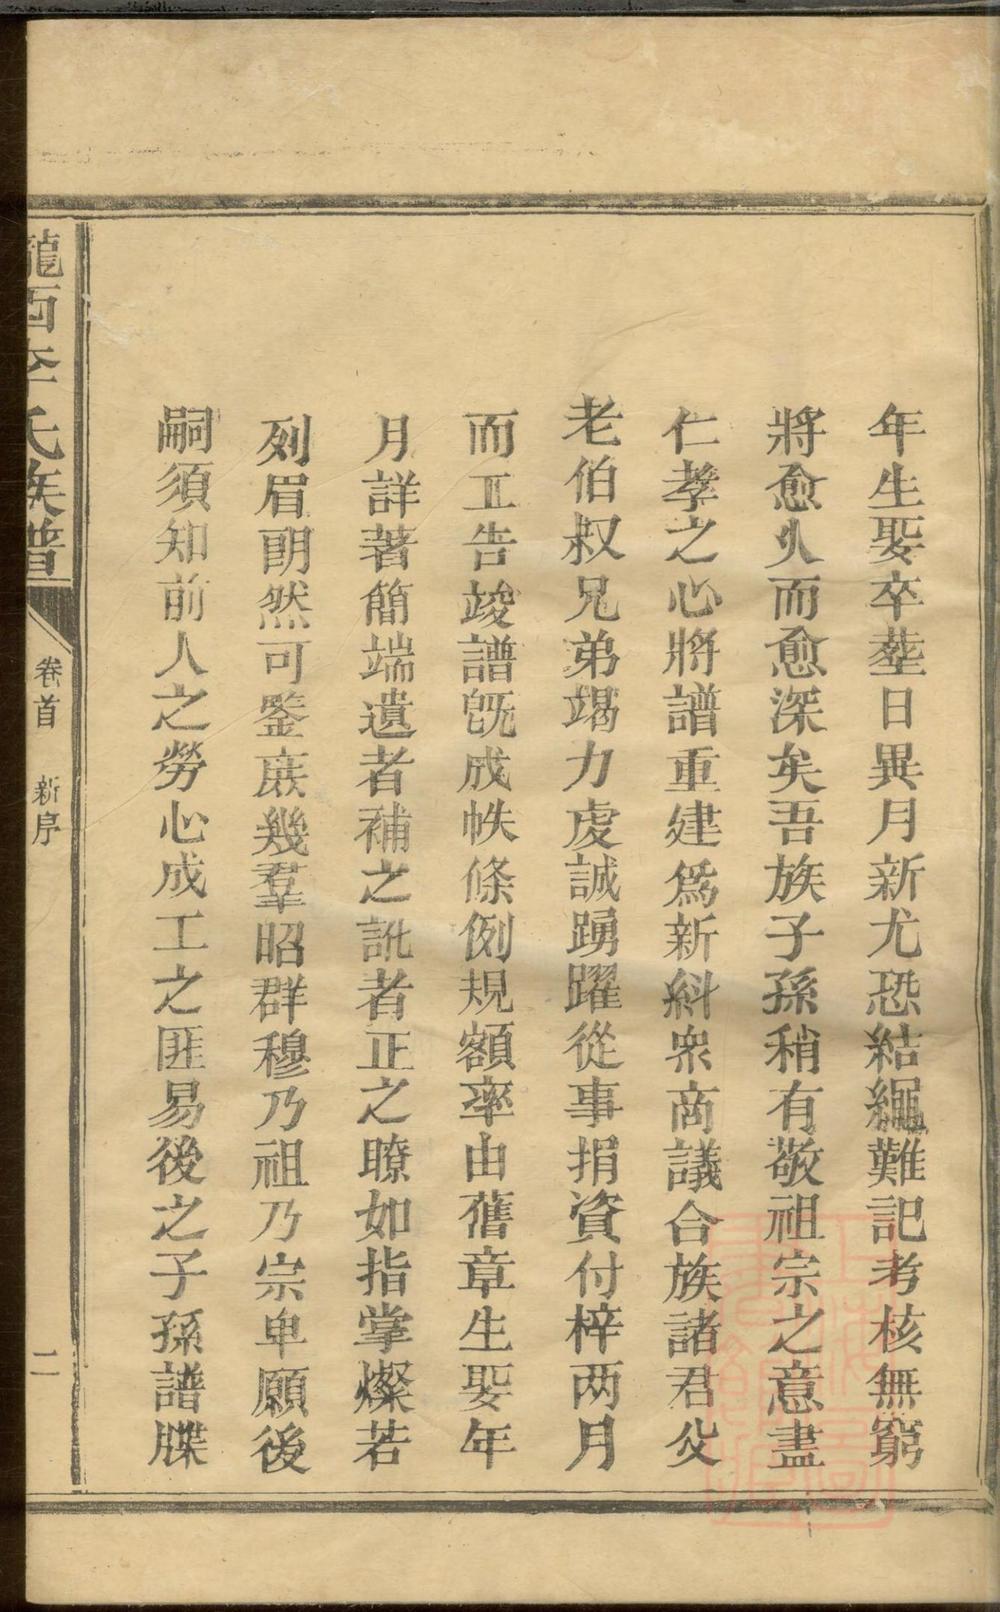 年生娶卒塟日異月新尤恐結繩難記考核無窮
將愈久而愈深矣吾族子孫稍有敬祖宗之意盡
仁孝之心將譜重建爲新糾衆商議合族諸君父
老伯叔兄弟竭力虔誠踴躍從事捐資付梓两月
而工告竣譜旣成帙條例規額率由舊章生娶年
月詳著簡端遺者補之訛者正之瞭如指掌燦若
列眉朗然可鑒庶幾羣昭群穆乃祖乃宗卑願後
嗣須知前人之勞心成工之匪易後之子孫譜牒
隴西李氏族譜
卷首 新序
二